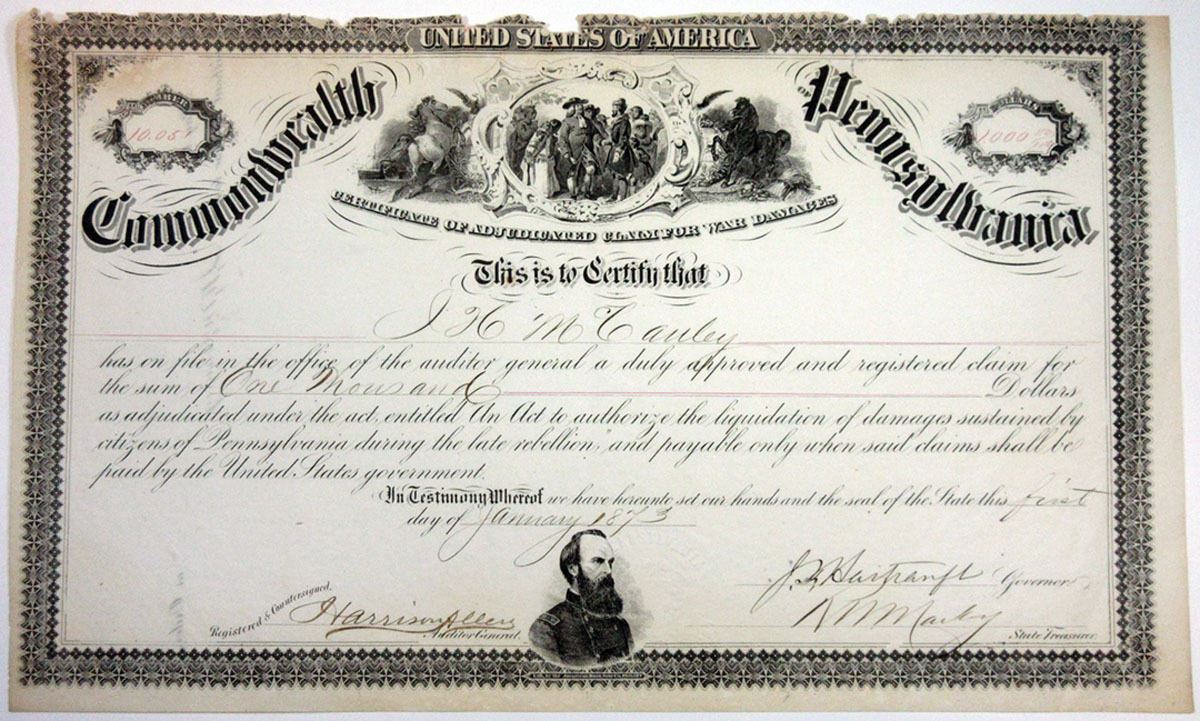 UNITED STATES OF AMERICA
Commonwealth OF Pennsylvania
NUMBER
10.051
DOLLARS
1000
CERTIFICATE OF ADJUDICATED CLAIM FOR WAR DAMAGES
This is to Certify that
J H McCauley
has on file in the office of the auditor general a duly approved and registered claim for
the sum of One Thousand Dollars
as adjudicated under the act, entitled "An Act to authorize the liquidation of damages sustained by
citizens of Pennsylvania during the late rebellion," and payable only when said claims shall be
paid by the United States government.
In Testimony Whereof we have hereunto set our hands and the seal of the State this first
day of January 1873
J F Hartranft Governor
Registered & Countersigned.
Harrison Allen
Auditor General.
R W Mackey
State Treasurer.